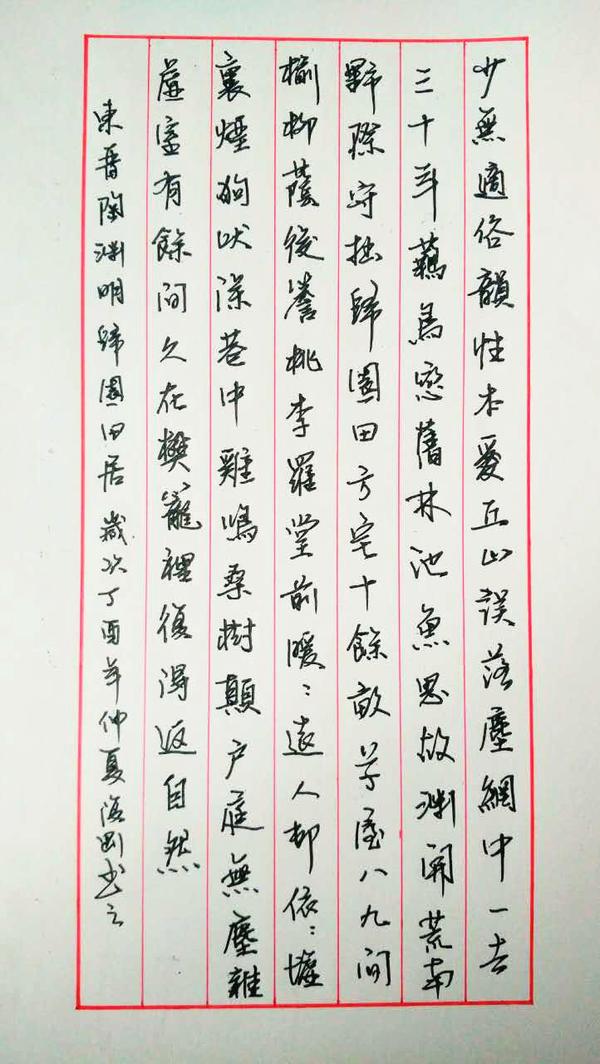 少無適俗韻性本愛丘山誤落塵網中一去
三十年羈鳥戀舊林池魚思故渊開荒南
野際守拙歸園田方宅十餘畝草屋八九间
榆柳蔭後簷桃李羅堂前暖〻遠人邨依〻墟
裏煙狗吠深巷中雞鳴桑樹顛户庭無塵雜
虛室有餘间久在樊籠裡復得返自然
東晉陶渊明歸園田居 歲次丁酉年仲夏书之